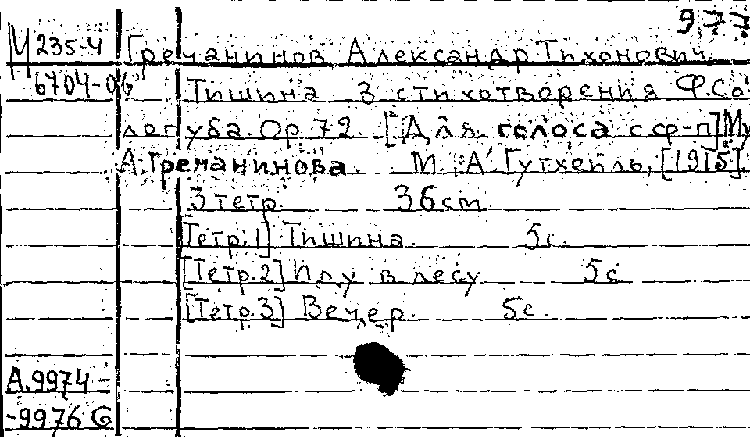 977
М 235-4 Гречанинов, Александр Тихонович.
6704-06 Тишина 3 стихотворения Ф.Со
логуба. Op. 72. [Для голоса с ф-п] Му
А. Гречанинова. М., А. Гутхейль, [1915].
3 тетр. 36 cm.
[Тетр. 1] Тишина. 5с.
[Тетр. 2] Иду в лесу 5с
[Тетр. 3] Вечер. 5с.
А. 9974 -
-9976 G